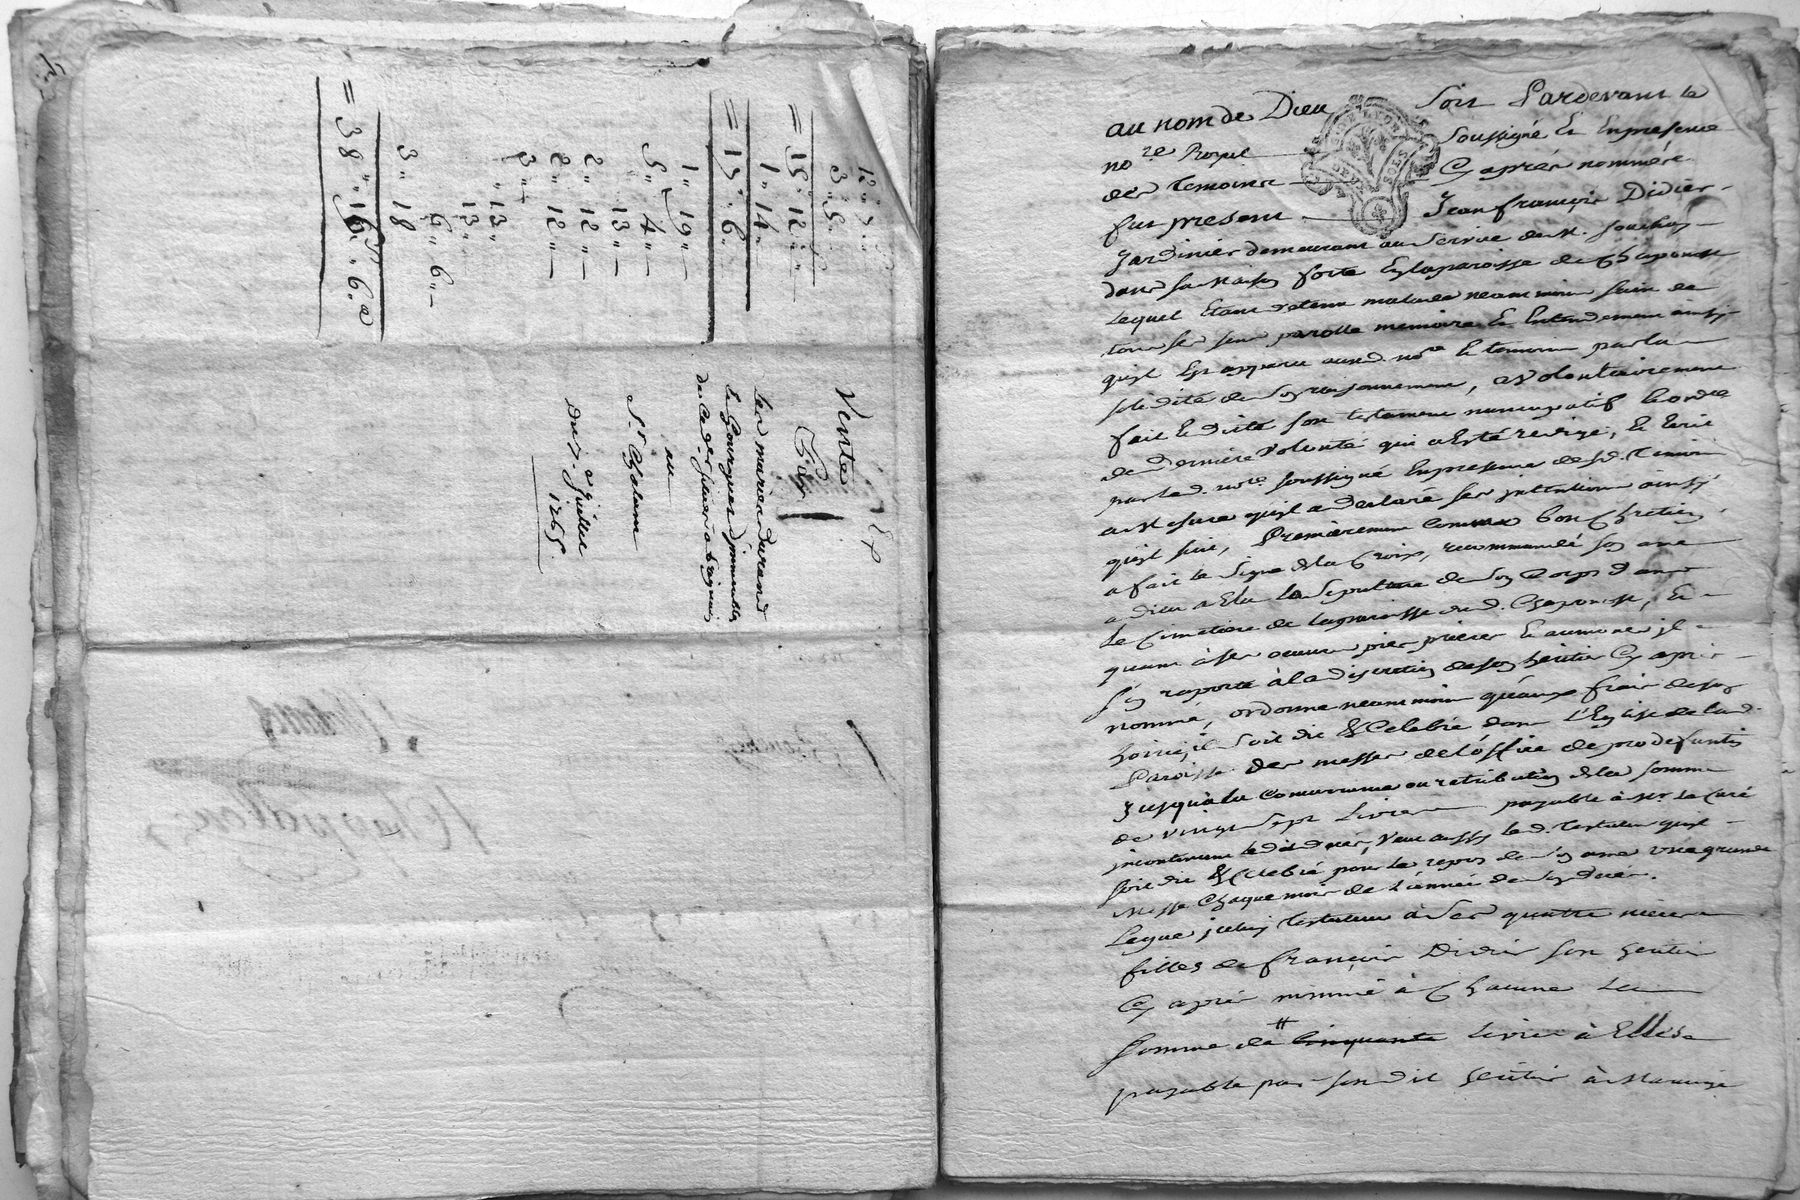 12 " 3
3 " 5
= 15 " 12 "
1 " 14 "
= 15 " 6 "
1 " 19 "
5 " 4 "
" 13 "
2 " 12 "
2 " 12 "
3 "
" 13 "
13 "
6 " 6 "
3 " 18
= 38 " 16 " 6 d
Vente
Par
Les mariés durand
& Gourguet d'immeubles
au
Sr Chalam
Du 7e Juillet
1765
au nom de Dieu Soit Pardevant le
nore Royal Soussigné Et En presence
des temoins Cy aprés nommés
fut present Jean françois Didier
Jardinier demeurant au service de M. Souchay
dans sa Maison forte En la paroisse de Chaponost
Lequel Etant detenu malade neantmoins sain de
tous ses sens parolle memoire Et Entendement ainsy
quil Est apparu aud. nore Et temoins par la
solidité de son raisonnement, a volontairement
fait Et dicté son testament nuncupatif Et ordce
de derniere volonté qui a Eté redigé, Et Ecrit
par led. nore soussigné En presence desd. temoins
a Mesure quil a declaré ses intentions ainsy
quil suit, Premierement Comme bon Chretien
a fait le signe de la Croix, recommandé son ame
a dieu a Elu la Sepulture de son Corps dans
le Cimetiere de la paroisse dud. Chaponost, Et
quant à ses oeuvres pies prieres Et aumones il
s'en raporte à la discretion de son heritier Cy aprés
nommé, ordonne neantmoins qu'aux frais de son
hoirie, il soit dit & Celebré dans L'Eglise de lad.
Paroisse des messes de l'office de pro defunctis
Jusqu'à la Concurrence ou retribution de la somme
de vingt Sept Livres payable à Mr. le Curé
incontinent le dit decés, Veut aussy led. testateur quil
soit dit & Celebré pour le repos de son ame une grande
Messe Chaque mois de L'année de son decés.
Legue icelui testateur à ses quatre nieces
filles de françois Didier son heritier
Cy aprés nommé à Chacune la
somme de # cinquante Livres à Elles
payable par son dit heritier à Mariage